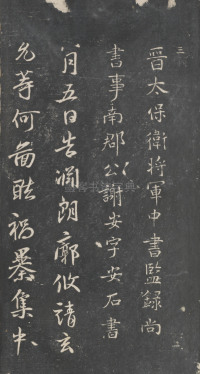 三
晋太保衛將軍中書監録尚
書事南郡公謝安字安石書
八月五日告淵朗廓攸靖玄
允等何圖酷禍暴集中